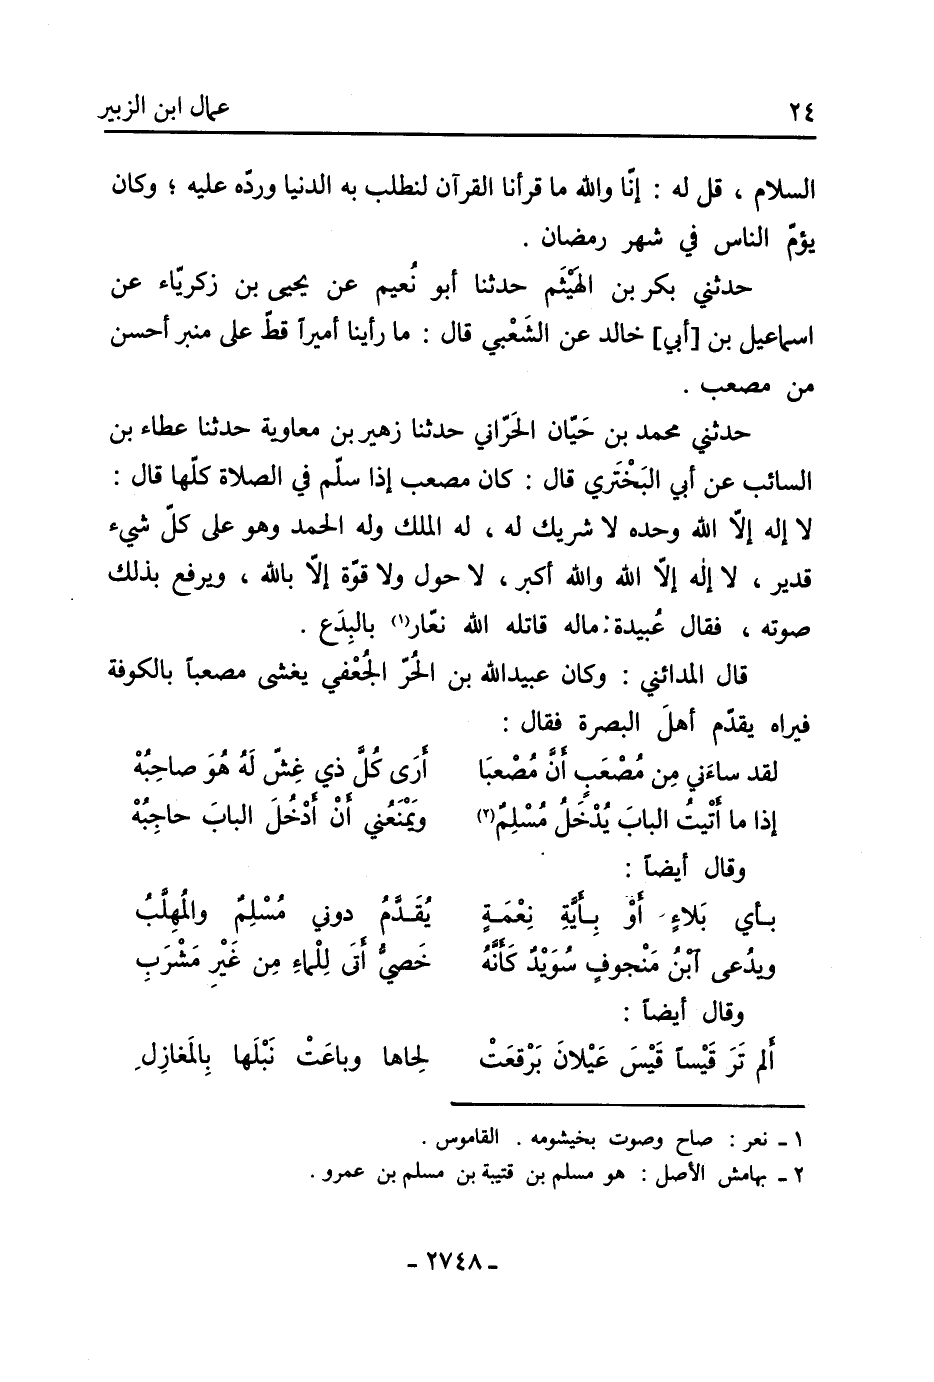 ٢٤ عمال ابن الزبير
السلام ، قل له : إنّا والله ما قرأنا القرآن لنطلب به الدنيا وردّه عليه ؛ وكان
يؤمّ الناس في شهر رمضان .
حدثني بكر بن الهَيْثَم حدثنا أبو نُعيم عن يحيى بن زكريّاء عن
اسماعيل بن [أبي] خالد عن الشَعْبي قال : ما رأينا أميراً قطّ على منبر أحسن
من مصعب .
حدثني محمد بن حَيّان الحَرّاني حدثنا زهير بن معاوية حدثنا عطاء بن
السائب عن أبي البَخْتَري قال : كان مصعب إذا سلّم في الصلاة كلّها قال :
لا إله إلّا الله وحده لا شريك له ، له الملك وله الحمد وهو على كلّ شيء
قدير ، لا إلٰه إلّا الله والله أكبر ، لا حول ولا قوّة إلّا بالله ، ويرفع بذلك
صوته ، فقال عُبيدة: ماله قاتله الله نعّار(١) بالبِدَع .
قال المدائني : وكان عبيدالله بن الحُرّ الجُعْفي يغشى مصعباً بالكوفة
فيراه يقدّم أهلَ البصرة فقال :
لقد ساءَني مِن مُصْعَبٍ أَنَّ مُصْعبَا أَرَى كُلَّ ذي غِشّ لَهُ هُوَ صاحِبُهْ
إذا ما أَتَيْتُ البابَ يُدْخَلُ مُسْلِمٌ(٢) ويَمْنَعُني أَنْ أَدْخُلَ البابَ حاجِبُهْ
وقال أيضاً :
بـأي بَلاءٍ أَوْ بِـأَيَّةِ نِعْمَـةٍ يُقَـدَّمُ دوني مُسْلِمٌ والمُهلَّبُ
ويدُعى آبْنُ مَنْجوفٍ سُوَيْدٌ كَأَنَّهُ خَصيٌّ أَتَى لِلْماءِ مِن غَيْرِ مَشْرَبِ
وقال أيضاً :
أَلم تَرَ قَيْساً قَيْسَ عَيْلانَ بَرْقعَتْ لِحاها وباعَتْ نَبْلَها بِالمَغازِلِ
١ - نعر : صاح وصوت بخيشومه . القاموس .
٢ - بهامش الأصل : هو مسلم بن قتيبة بن مسلم بن عمرو .
- ٢٧٤٨ -